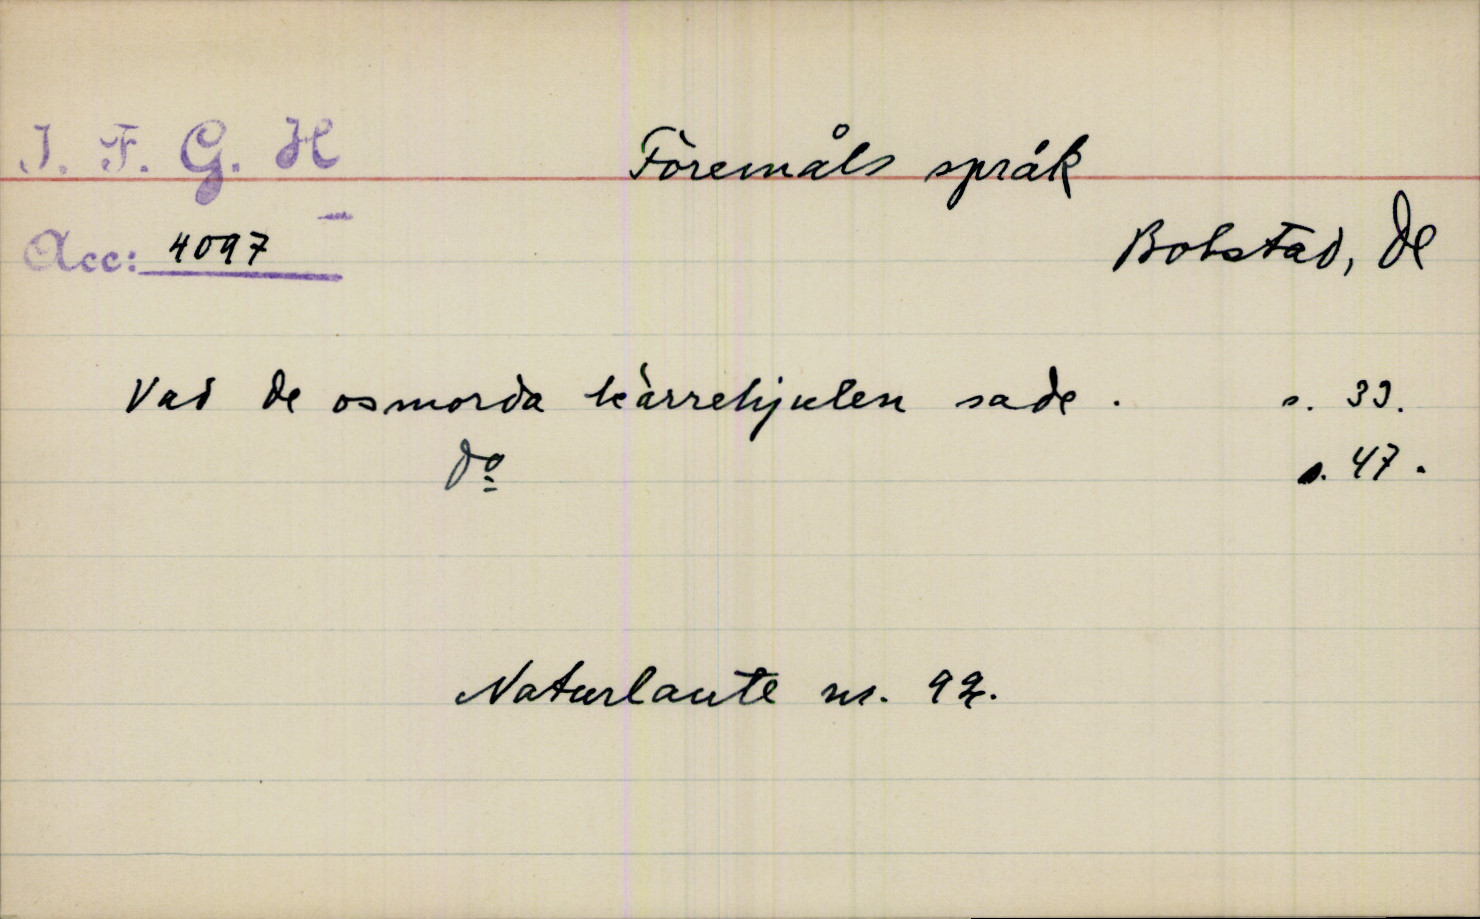 I. F. G. H
Föremåls språk
Acc: 4097
Bolstad, De
Vad de osmorda kärrehjulen sade. s. 33.
do s. 47.
Naturlaute nr. 92.